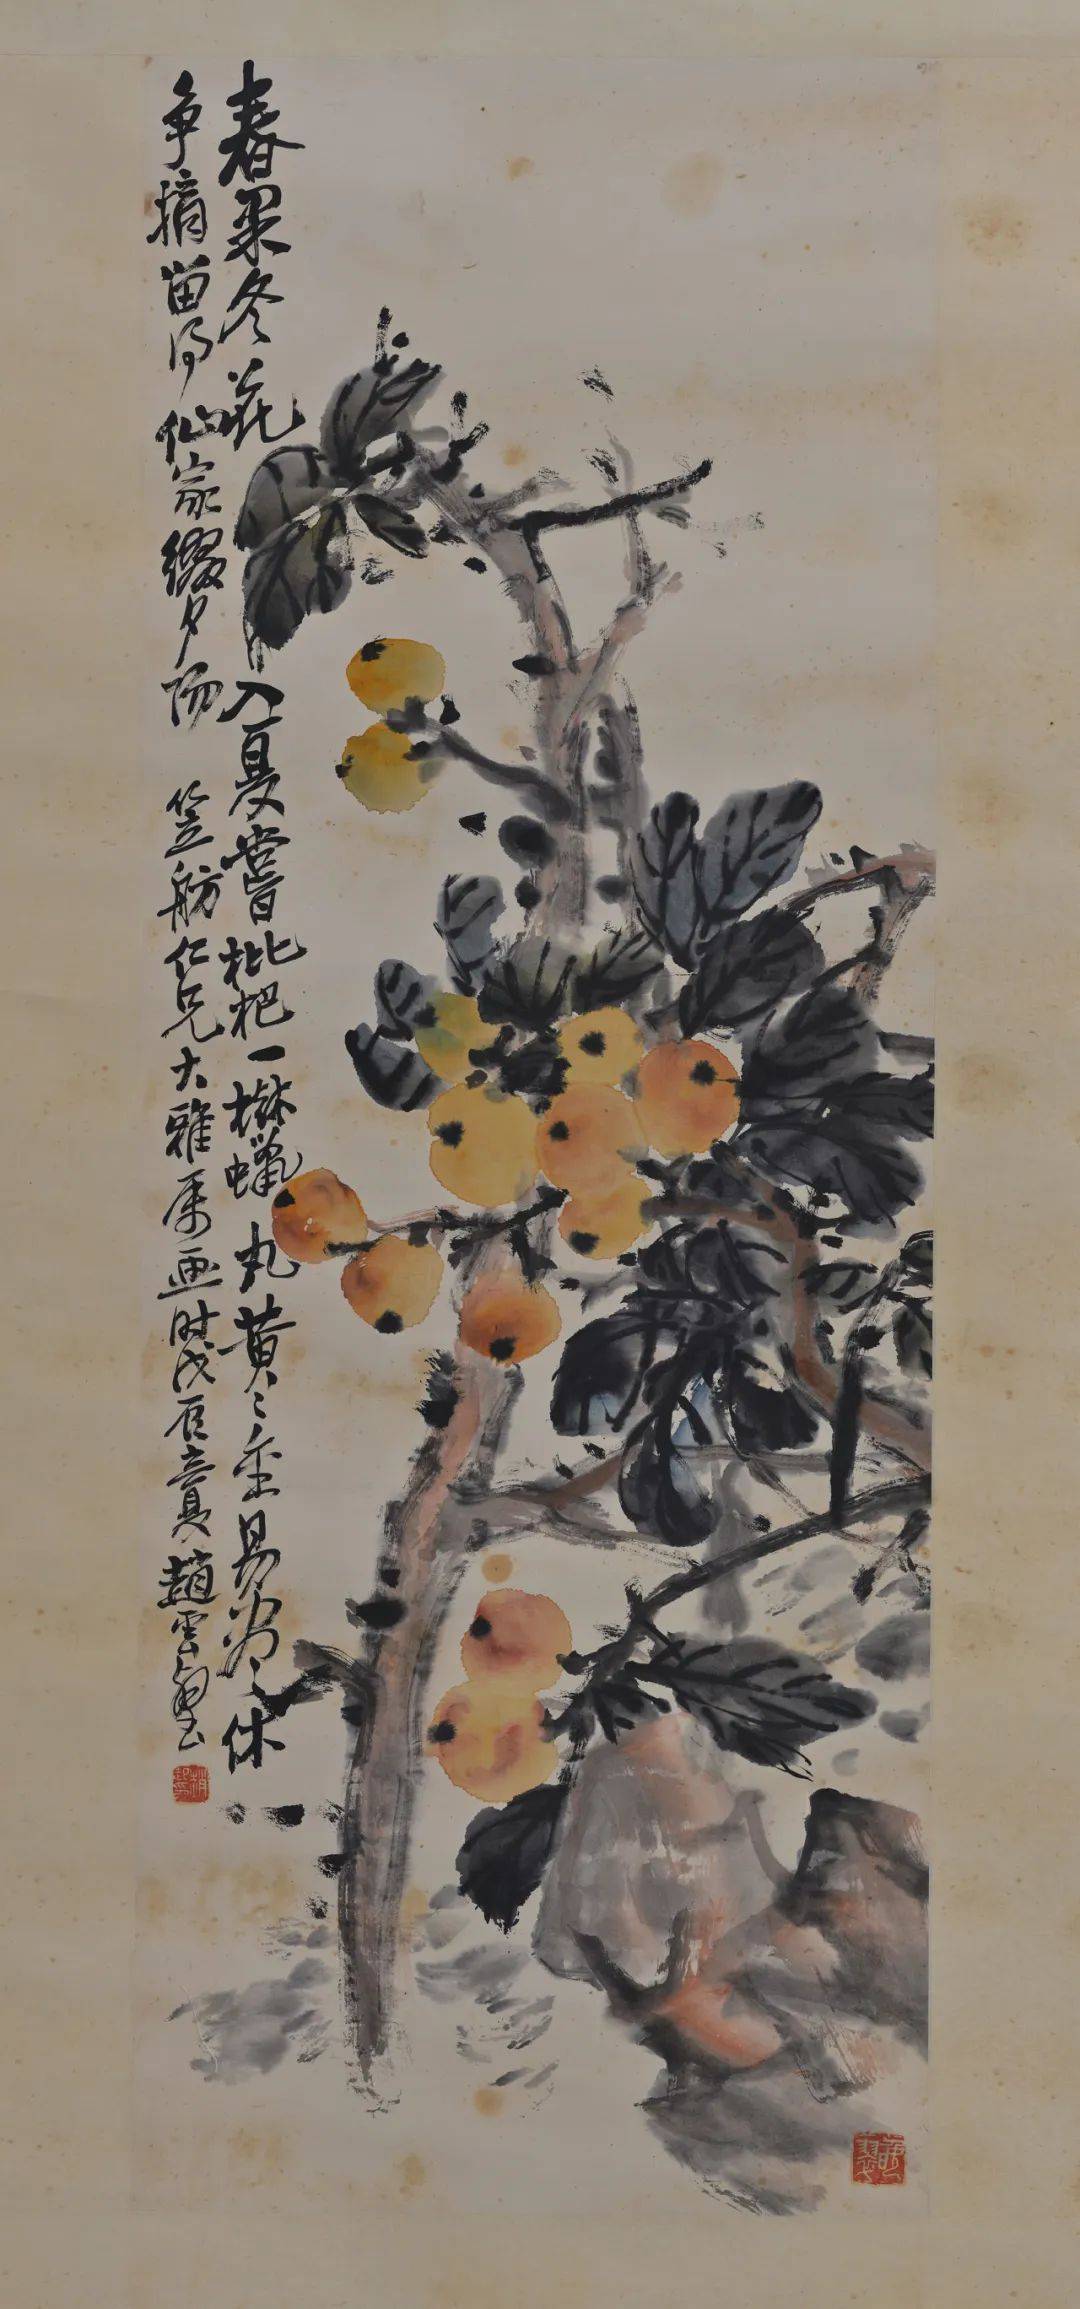 春果冬花入夏嘗枇杷一樹蠟丸黃〻金易盡休
爭摘留得仙家綴夕陽 笠舫仁兄大雅屬畫时戊辰立夏趙雲壑